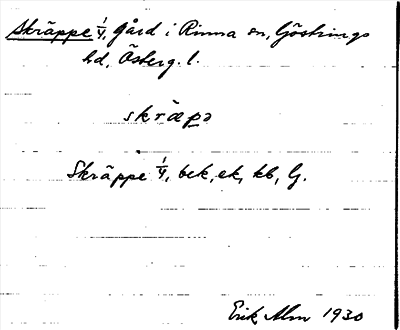 Skräppe 1/4, gård i Rinna sn, Göstrings
hd, Österg. l.
skræpə
Skräppe 1/4, bek, ek, kb, G.
Erik Alm 1930